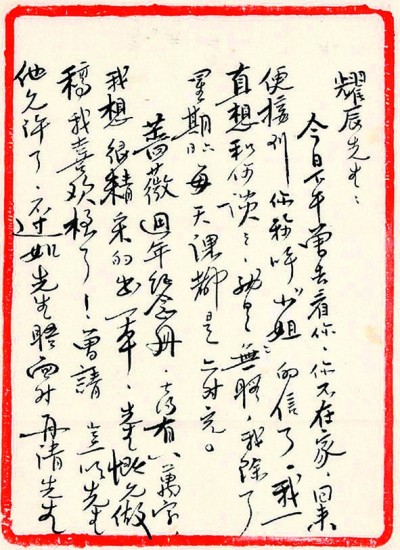 耀辰先生：
今日下午曾去看你，你不在家，回来
便接到你称呼“小姐”的信了，我一
直想和你谈谈，無暇，我除了
星期日，每天課都是六时完。
薔薇週年纪念册，有八萬字，
我想很精采的出一本，先生慨允做
稿我喜欢极了！曾請豈明先生
他允许了，不过如先生晤面时再請先生